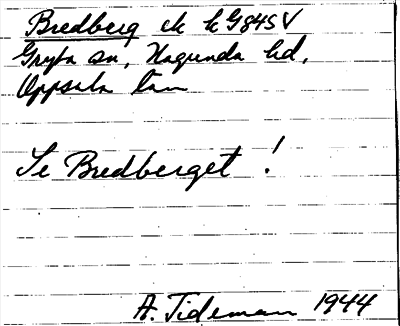 Bredberg ek kG845V
Gryta sn, Hagunda hd,
Uppsala län
Se Bredberget!
A. Tideman 1944